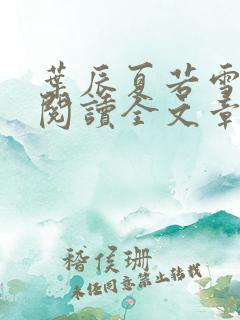 葉辰夏若雪
閱讀全文章
稽侯珊
未經同意禁止轉載